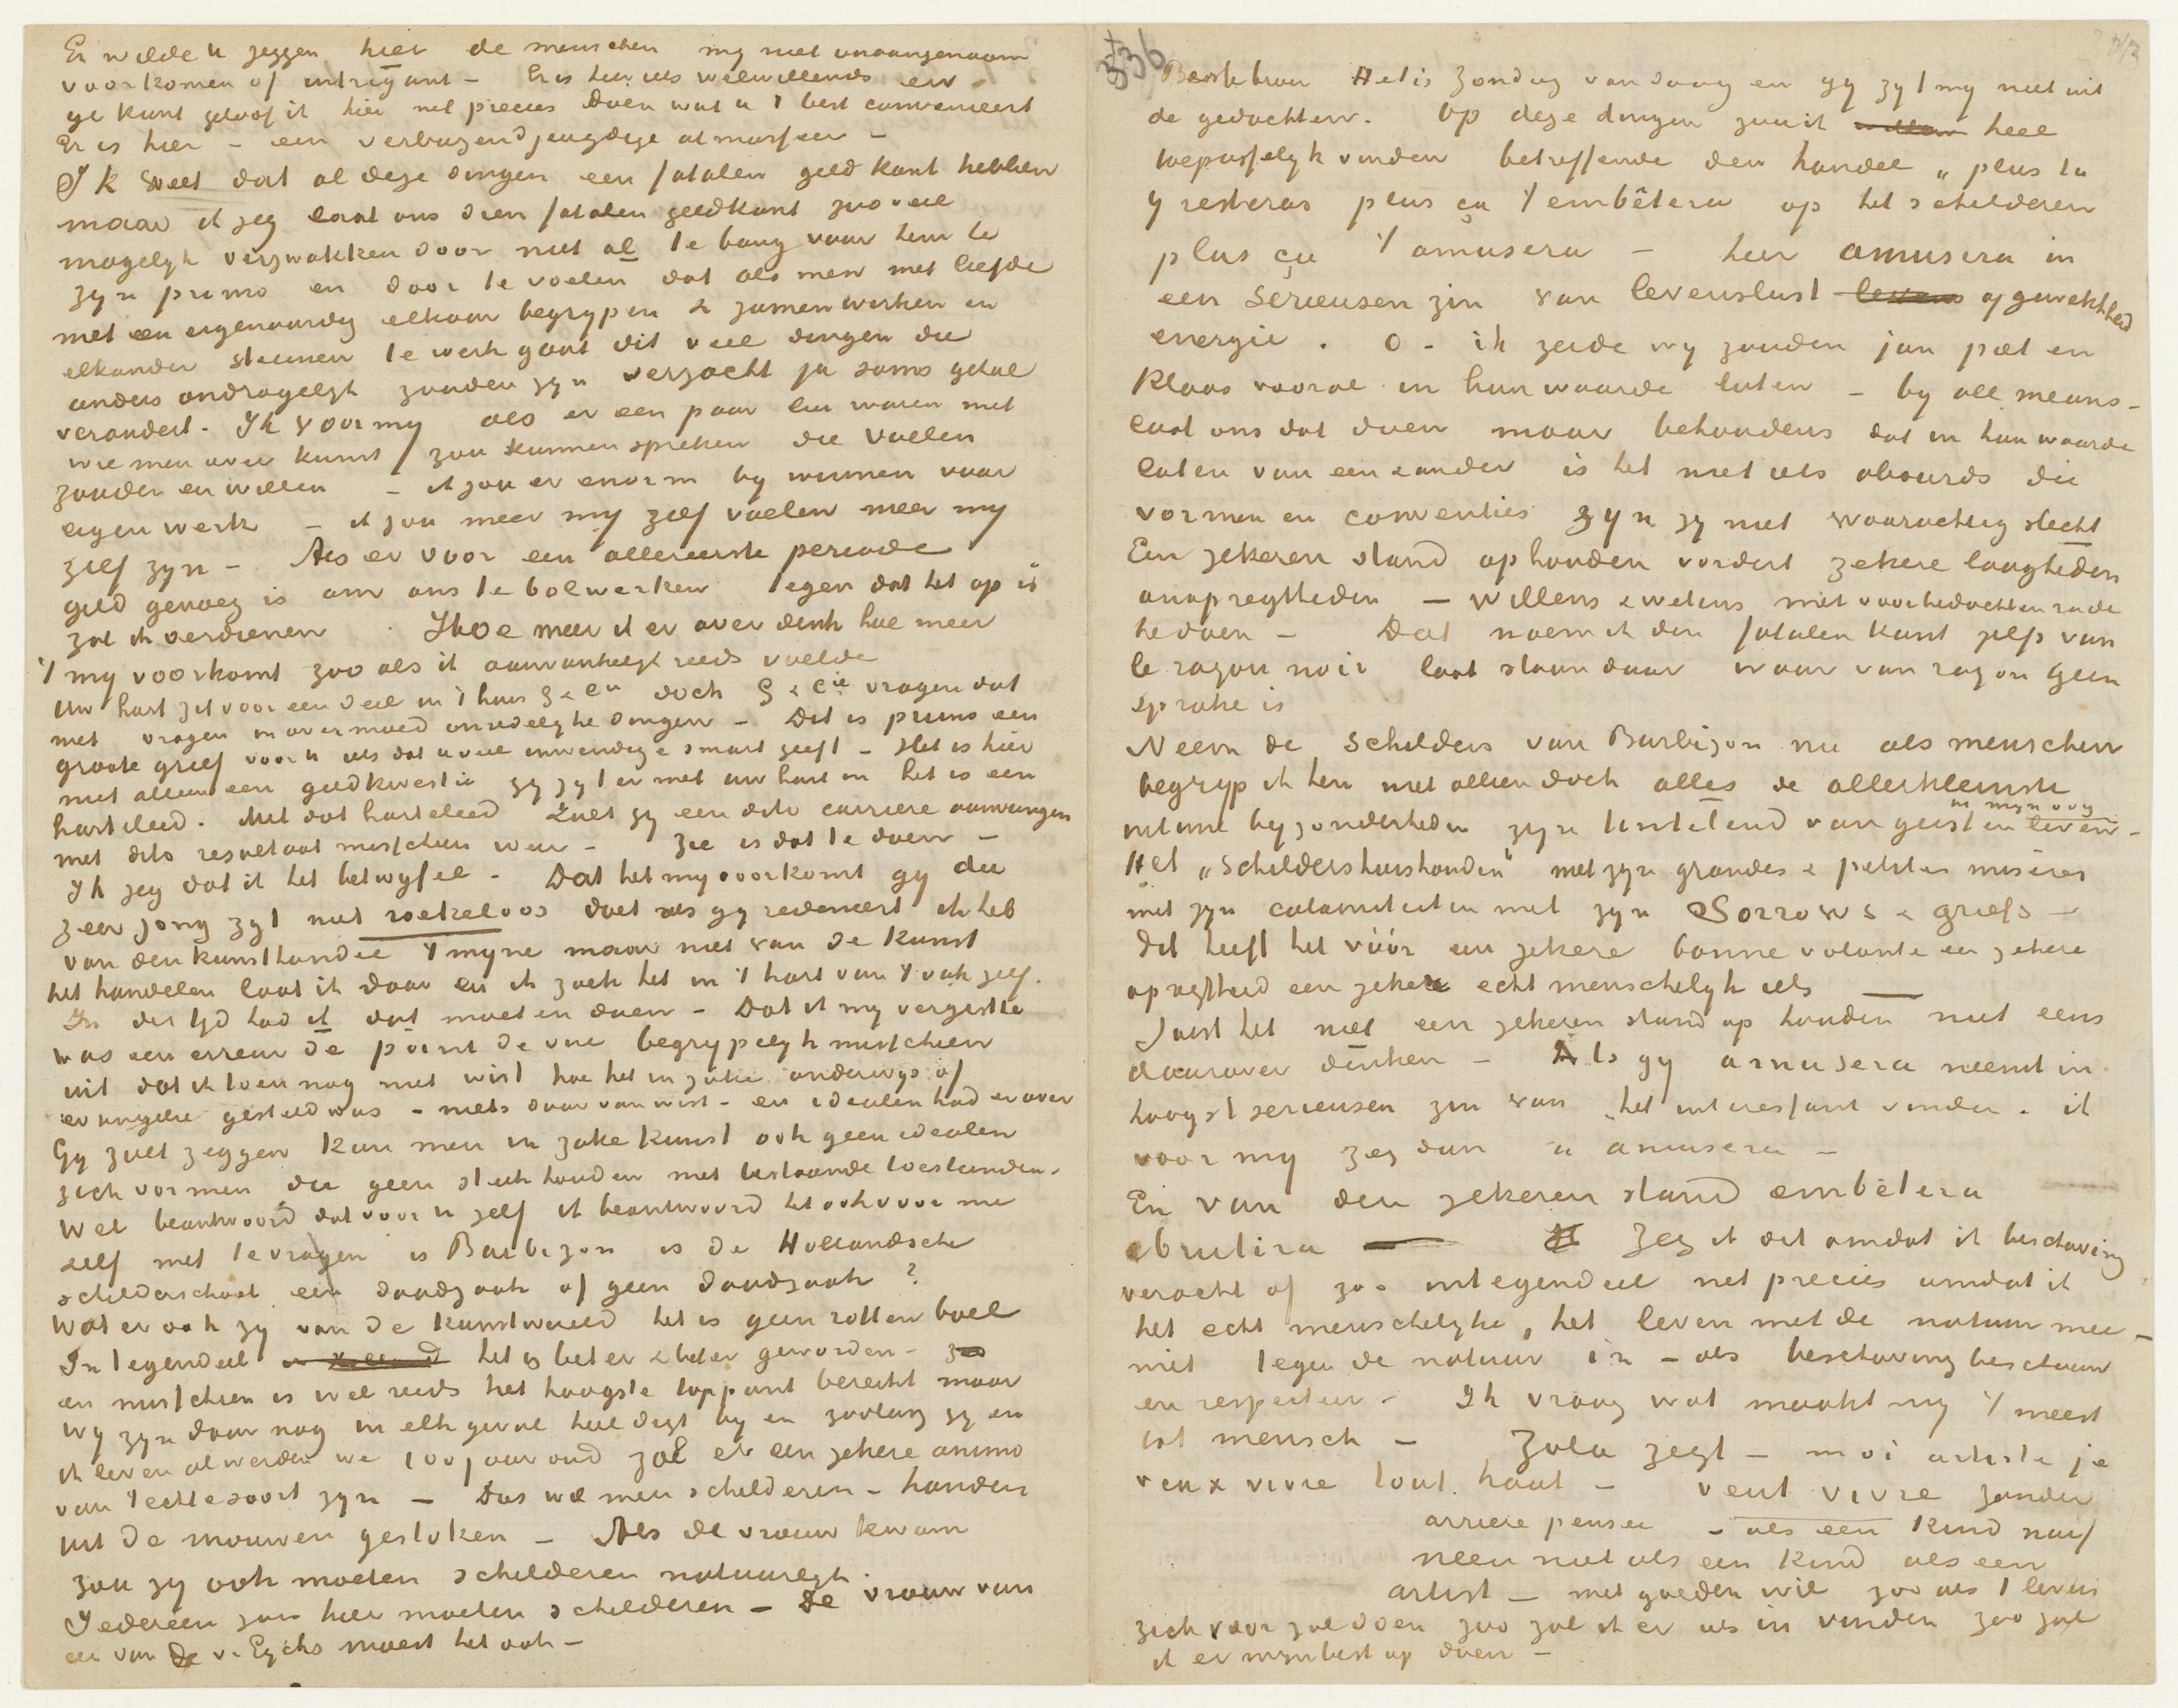 En wilde u zeggen hier de menschen my niet onaangenaam
voorkomen of intrigant – Er is hier iets welwillends en
ge kunt geloof ik hier net precies doen wat u 't best convenieert
Er is hier – een verbazend jeugdige atmosfeer –
Ik weet dat al deze dingen een fatalen geldkant hebben
maar ik zeg laat ons dien fatalen geldkant zooveel
mogelyk verzwakken door niet al te bang voor hem te
zyn primo en door te voelen dat als men met liefde
met een eigenaardig elkaar begrypen & zamenwerken en
elkander steunen te werk gaat dit veel dingen die
anders ondragelyk zouden zyn verzacht ja soms geheel
verandert. Ik voor my als er een paar lui waren met
wie men over kunst zou kunnen spreken die voelen
zouden en willen – ik zou er enorm by winnen voor
eigen werk – ik zou meer my zelf voelen meer my
zelf zyn – Als er voor een allereerste periode
geld genoeg is om ons te bolwerken tegen dat het op is
zal ik verdienen . Ihoe meer ik er over denk hoe meer
't my voorkomt zoo als ik aanvankelyk reeds voelde
Uw hart zit voor een deel in 't huis G & Cie doch G & Cie vragen dat
niet vragen in overmoed onredelyke dingen – Dit is primo een
groote grief voor u iets dat u veel inwendige smart geeft – Het is hier
niet alleen een geldkwestie gy zyt er met uw hart in het is een
harteleed. Met dat harteleed zult gy een dito carriere aanvangen
met dito resultaat misschien weer – Zie is dat te doen –
Ik zeg dat ik het betwyfel – Dat het my voorkomt gy die
zeer jong zyt niet roekeloos doet als gy redeneert ik heb
van den kunsthandel 't myne maar niet van de kunst
het handelen laat ik daar en ik zoek het in 't hart van 't vak zelf.
In der tyd had ik dat moeten doen – Dat ik my vergistte
was een erreur de point de vue begrypelyk misschien
uit dat ik toen nog niet wist hoe het in zake onderwys of
evangelie gesteld was – niets daar van wist – en idealen had er over
Gy zult zeggen kan men in zake kunst ook geen idealen
zich vormen die geen steek houden met bestaande toestanden –
Wel beantwoord dat voor u zelf ik beantwoord het ook voor me
zelf met te vragen is Barbizon is de Hollandsche
schilderschool een daadzaak of geen daadzaak ?
Wat er ook zy van de kunstwereld het is geen rotten boel
Integendeel het is beter & beter geworden –
en misschien is wel reeds het hoogste toppunt bereikt maar
wy zyn daar nog in elk geval heel digt by en zoolang gy en
ik leven al werden we 100 jaar oud zal er een zekere animo
van 't echte soort zyn – Dus wie men schilderen – handen
uit de mouwen gestoken – Als de vrouw kwam
zou zy ook moeten schilderen natuurlyk.
Iedereen zou hier moeten schilderen – De vrouw van
een van de v. Eycks moest het ook –
336
Beste broer Het is Zondag van daag en gy zyt my niet uit
de gedachten. Op deze dingen zou ik willen heel
toepasselyk vinden betreffende den handel „plus tu
y resteras plus ça t'embêtera op het schilderen
plus ça t'amusera – hier amusera in
een serieusen zin van levenslust levens opgewektheid
energie. o – ik zeide wy zouden jan piet en
Klaas vooral in hun waarde laten – by all means –
laat ons dat doen maar behoudens dat in hun waarde
laten van een & ander is het niet iets absurds die
vormen en conventies zyn zy niet waarachtig slecht
Een zekeren stand ophouden vordert zekere laagheden
onopregtheden – willens & wetens met voorbedachten rade
te doen – Dat noem ik den fatalen kant zelfs van
le rayon noir laat staan daar waar van rayon geen
sprake is
Neem de schilders van Barbizon nu als menschen
begryp ik hen niet alleen doch alles de allerkleinste
intime byzonderheden zyn tintelend van geest en in myn oog leven –
Het „Schildershuishouden” met zyn grandes & petites misères
met zyn calamiteiten met zyn Sorrows & griefs –
dit heeft het vóór een zekere bonne volonté een zekere
opregtheid een zeker echt menschelyk iets
Juist het niet een zekeren stand op houden niet eens
daarover denken – Als gy amusera neemt in
hoogst serieusen zin van het interessant vinden. ik
voor my zeg dan ça amusera –
En van den zekeren stand embêtera
abrutira — Zeg ik dit omdat ik beschaving
veracht of zoo integendeel net precies omdat ik
het echt menschelyke, het leven met de natuur mee –
niet tegen de natuur in – als beschaving beschouw
en respecteer – Ik vraag wat maakt my 't meest
tot mensch – Zola zegt – moi artiste je
veux vivre tout haut – veut vivre zonder
arriere pensee – als een kind naif
neen niet als een kind als een
artist – met goeden wil zoo als 't leven
zich voor zal doen zoo zal ik er iets in vinden zoo zal
ik er myn best op doen –